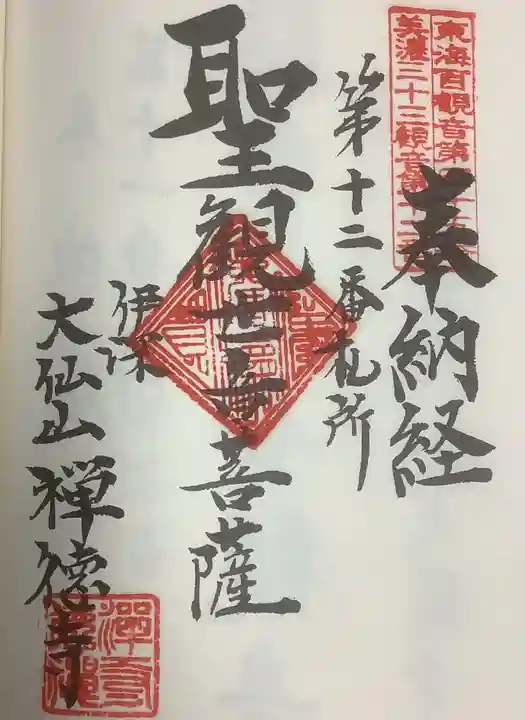 東海百観音第
美濃三十三観音第十二番
奉納経
第十二番札所
聖観世音菩薩
伊深
大仙山禅徳寺